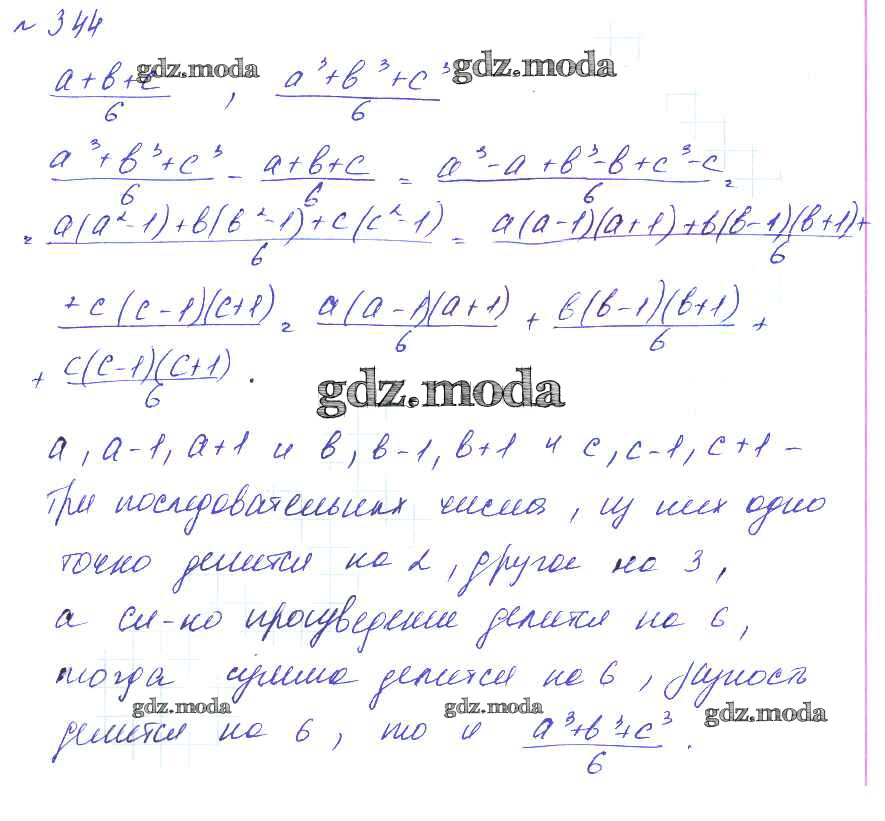 № 344
(a+b+c)/6 , (a³+b³+c³)/6
gdz.moda gdz.moda
(a³+b³+c³)/6 - (a+b+c)/6 = (a³-a+b³-b+c³-c)/6 =
= (a(a²-1)+b(b²-1)+c(c²-1))/6 = (a(a-1)(a+1)+b(b-1)(b+1)+)/6
(+c(c-1)(c+1)) = (a(a-1)(a+1))/6 + (b(b-1)(b+1))/6 +
+ (c(c-1)(c+1))/6 .
gdz.moda
a, a-1, a+1 и b, b-1, b+1 и c, c-1, c+1 -
Три последовательных числа, из них одно
точно делится на 2, другое на 3,
а сл-но произведение делится на 6,
тогда сумма делится на 6, разность
gdz.moda gdz.moda gdz.moda
делится на 6, то и (a³+b³+c³)/6 .